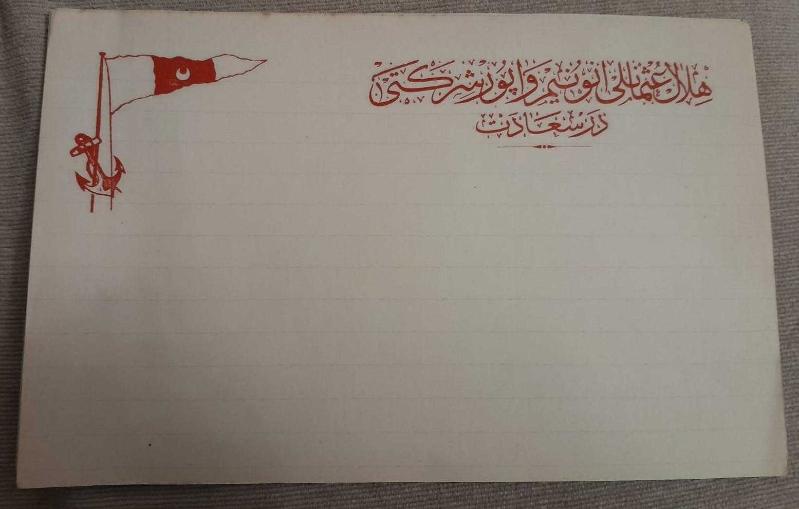 هلال عثمانلی انونیم واپور شركتی
درسعادت